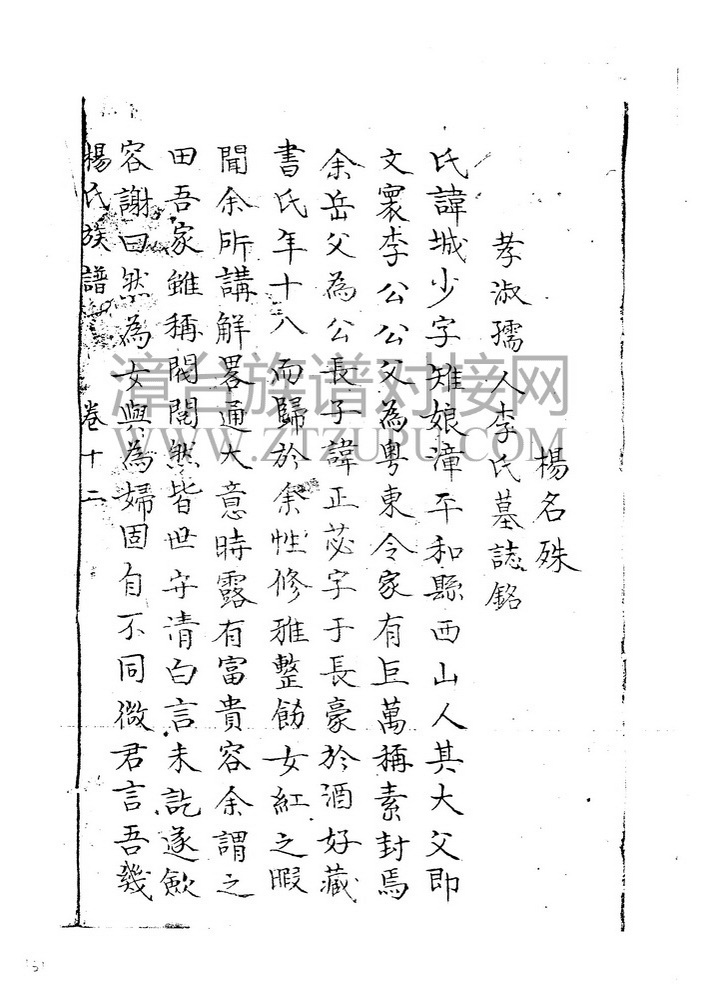 楊名殊
孝淑孺人李氏墓誌銘
氏諱城少字雉娘漳平和縣西山人其大父即
文寰李公公父為粵東令家有巨萬稱素封焉
余岳父為公長子諱正苾字于長豪於酒好藏
書氏年十八而歸於余性修雅整飭女紅之暇
聞余所講解畧通大意時露有富貴容余謂之
田吾家雖稱閥閱然皆世守清白言未訖遂歛
容謝曰然為女與為婦固自不同微君言吾幾
楊氏族譜 卷十二
漳台族谱对接网
WWW.ZTZUPU.COM